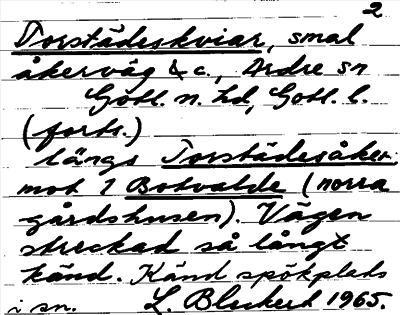 2
Torstädeskviar, smal
åkerväg &c., Ardre sn
Gotl. n. hd, Gotl. l.
(forts.)
längs Torstädesåker
mot 1 Botvalde (norra
gårdshusen). Vägen
streckad så långt
känd. Känd spökplats
i sn. L. Bleckert 1965.